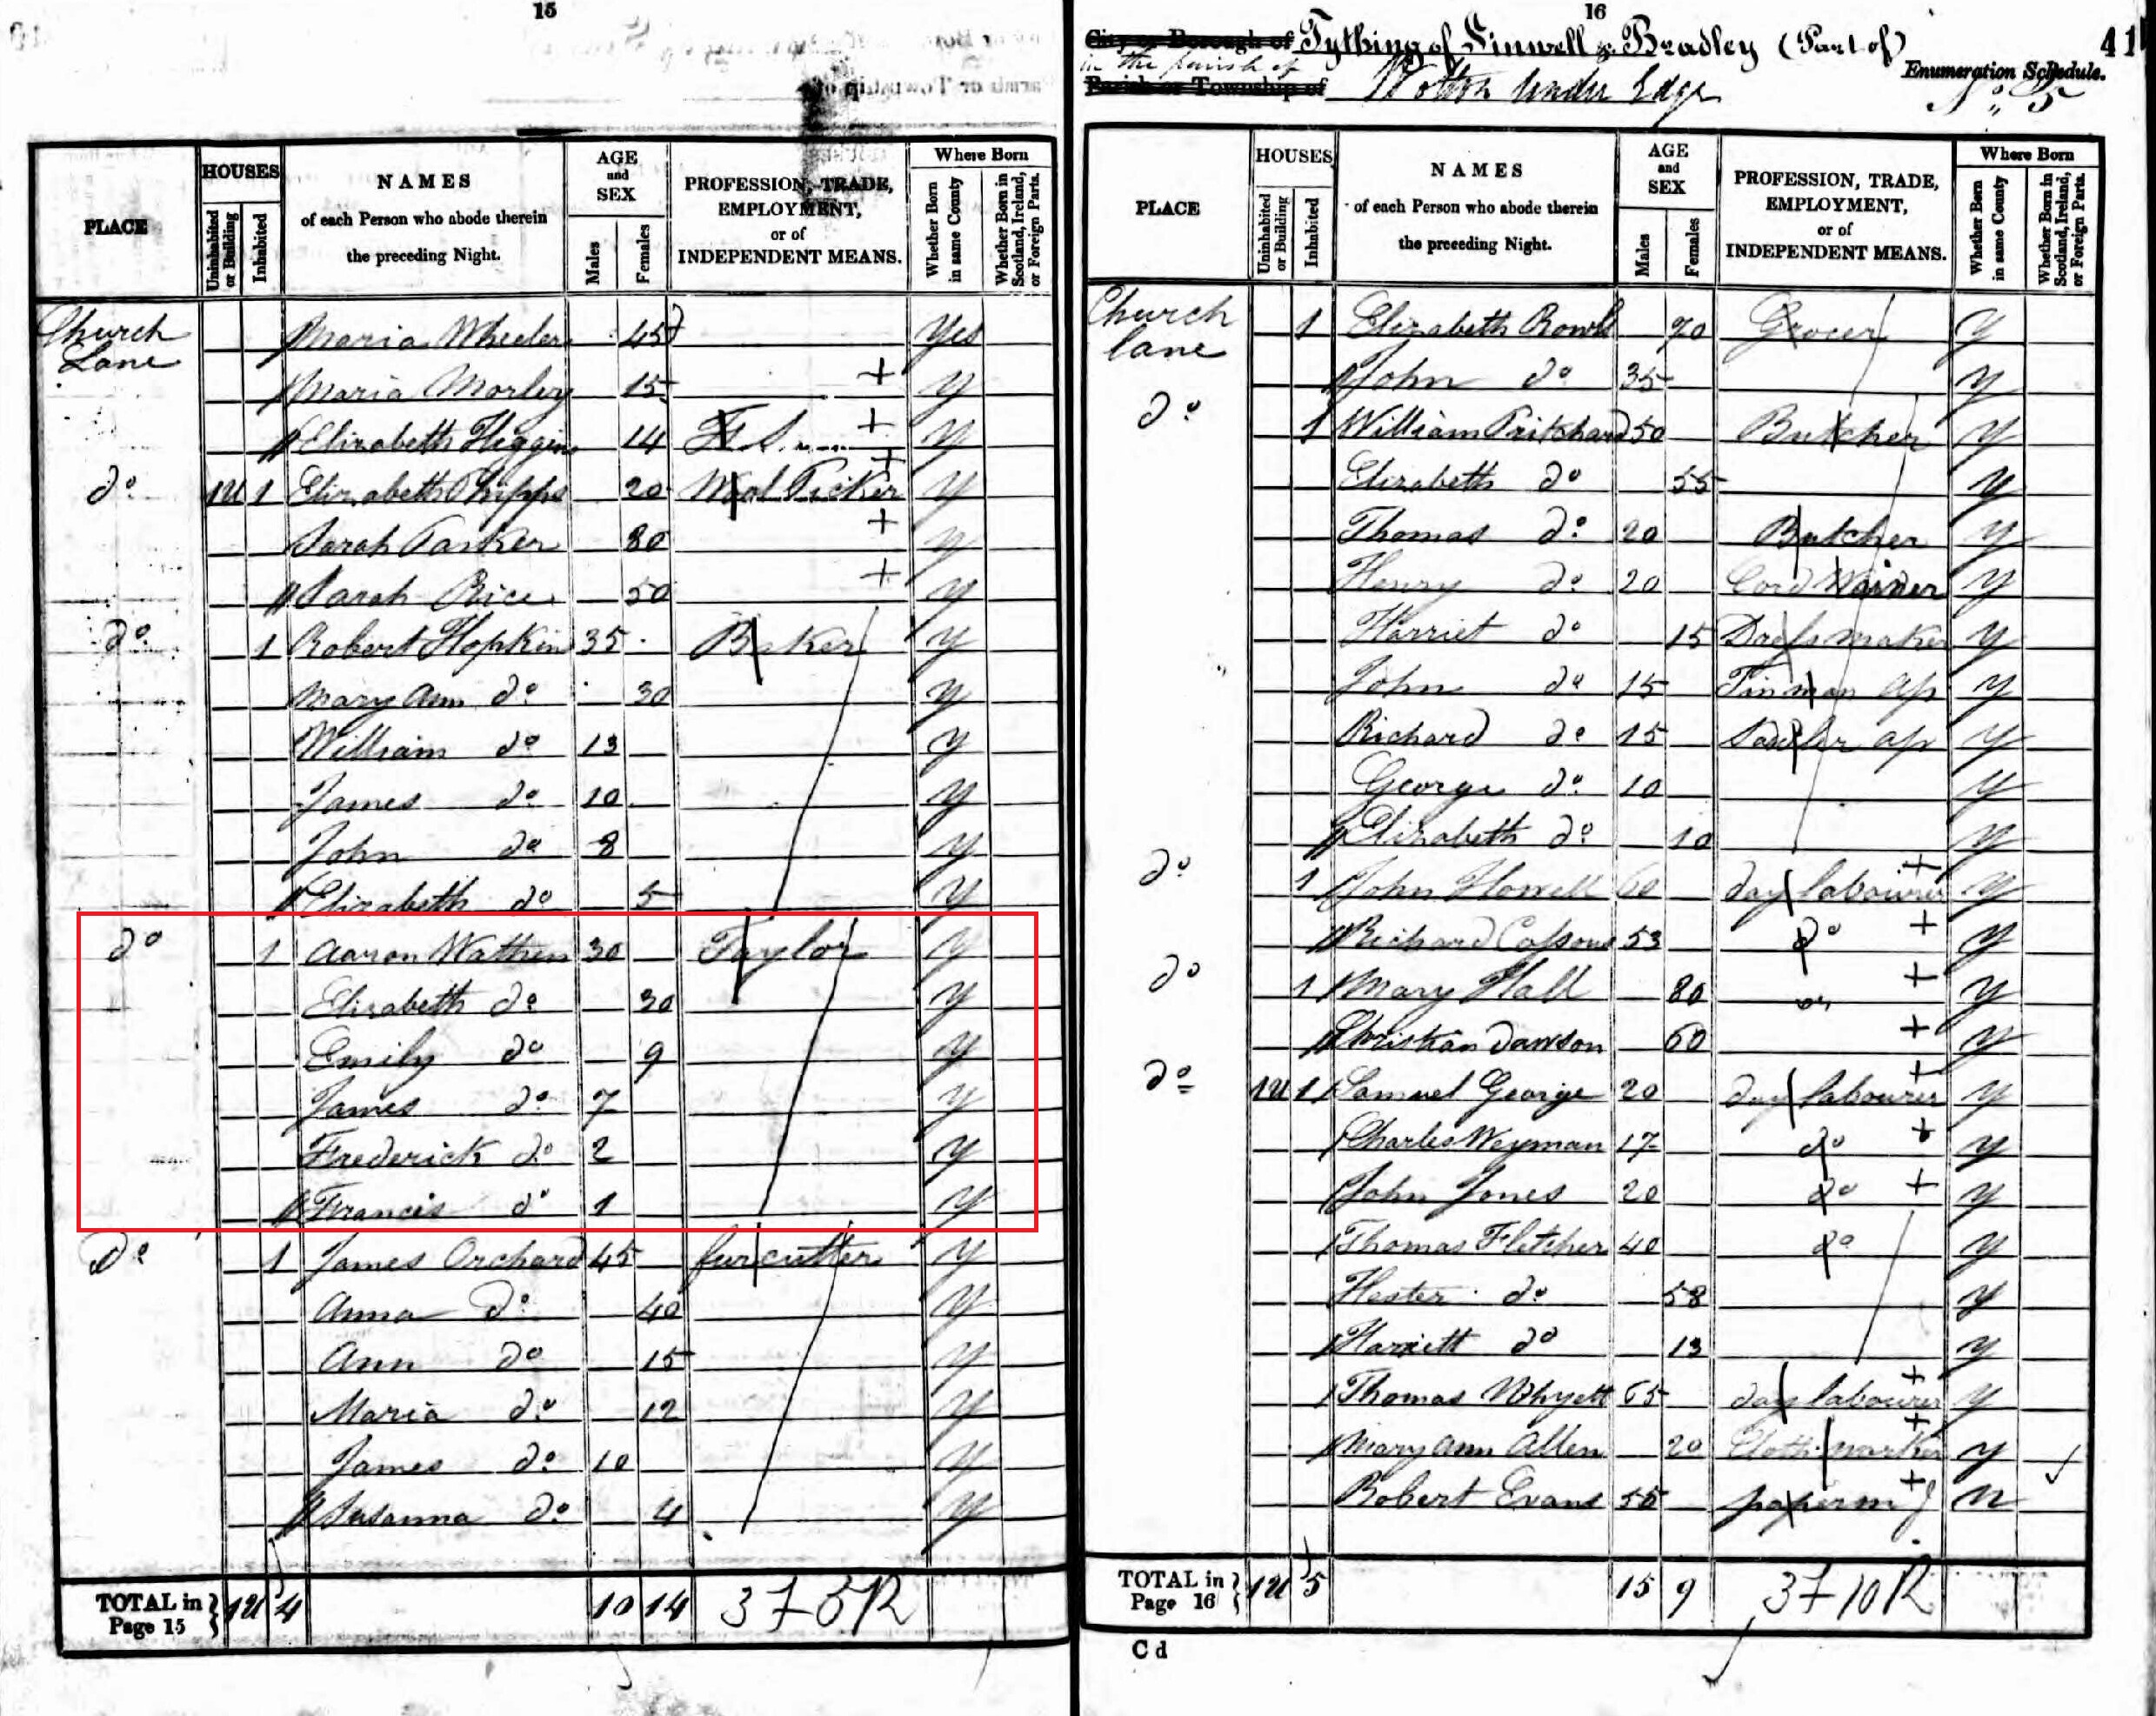 15
PLACE
HOUSES
Uninhabited or Building
Inhabited
NAMES
of each Person who abode therein
the preceding Night.
AGE
and
SEX
Males
Females
PROFESSION, TRADE,
EMPLOYMENT,
or of
INDEPENDENT MEANS.
Where Born
Whether Born in same County
Whether Born in Scotland, Ireland, or Foreign Parts.
Church Lane Maria Wheeler 45 Yes
Maria Morley 15 Y
Elizabeth Higgins 14 F.S. Y
do 1U 1 Elizabeth Phipps 20 Wool Picker Y
Sarah Parker 80 Y
Sarah Rice 50 Y
do 1 Robert Hopkin 35 Baker Y
Mary Ann do 30 Y
William do 13 Y
James do 10 Y
John do 8 Y
Elizabeth do 5 Y
do 1 Aaron Wathen 30 Taylor Y
Elizabeth do 30 Y
Emily do 9 Y
James do 7 Y
Frederick do 2 Y
Francis do 1 Y
Do 1 James Orchard 45 fur cutter Y
Anna Do 40 Y
Ann do 15 Y
Maria do 12 Y
James do 10 Y
Susanna do 4 Y
TOTAL in Page 15 1U 4 10 14
16
City or Borough of Tything of Sinwell & Bradley (Part of)
41
in the parish of
Parish or Township of Wotton under Edge
Enumeration Schedule.
No. 5
PLACE
HOUSES
Uninhabited or Building
Inhabited
NAMES
of each Person who abode therein
the preceding Night.
AGE
and
SEX
Males
Females
PROFESSION, TRADE,
EMPLOYMENT,
or of
INDEPENDENT MEANS.
Where Born
Whether Born in same County
Whether Born in Scotland, Ireland, or Foreign Parts.
Church lane 1 Elizabeth 70 Grocer Y
John do 35 Y
do 1 William Pritchard 50 Butcher Y
Elizabeth do 55 Y
Thomas do 20 Butcher Y
Henry do 20 Cord Wainer Y
Harriet do 15 Dress maker Y
John do 15 Tinman ap Y
Richard do 15 Saddler ap Y
George do 10 Y
Elizabeth do 10 Y
do 1 John Howell 60 day labourer Y
Richard Cossons 53 do Y
do 1 Mary Hall 80 Y
Christian Dawson 60 Y
do 1U 1 Samuel George 20 day labourer Y
Charles Weyman 17 do Y
John Jones 20 do Y
Thomas Fletcher 40 do Y
Hester do 58 Y
Harriett do 13 Y
Thomas Whyett 65 day labourer Y
Mary Ann Allen 20 Cloth worker Y
Robert Evans 55 N
TOTAL in Page 16 1U 5 15 9
C d